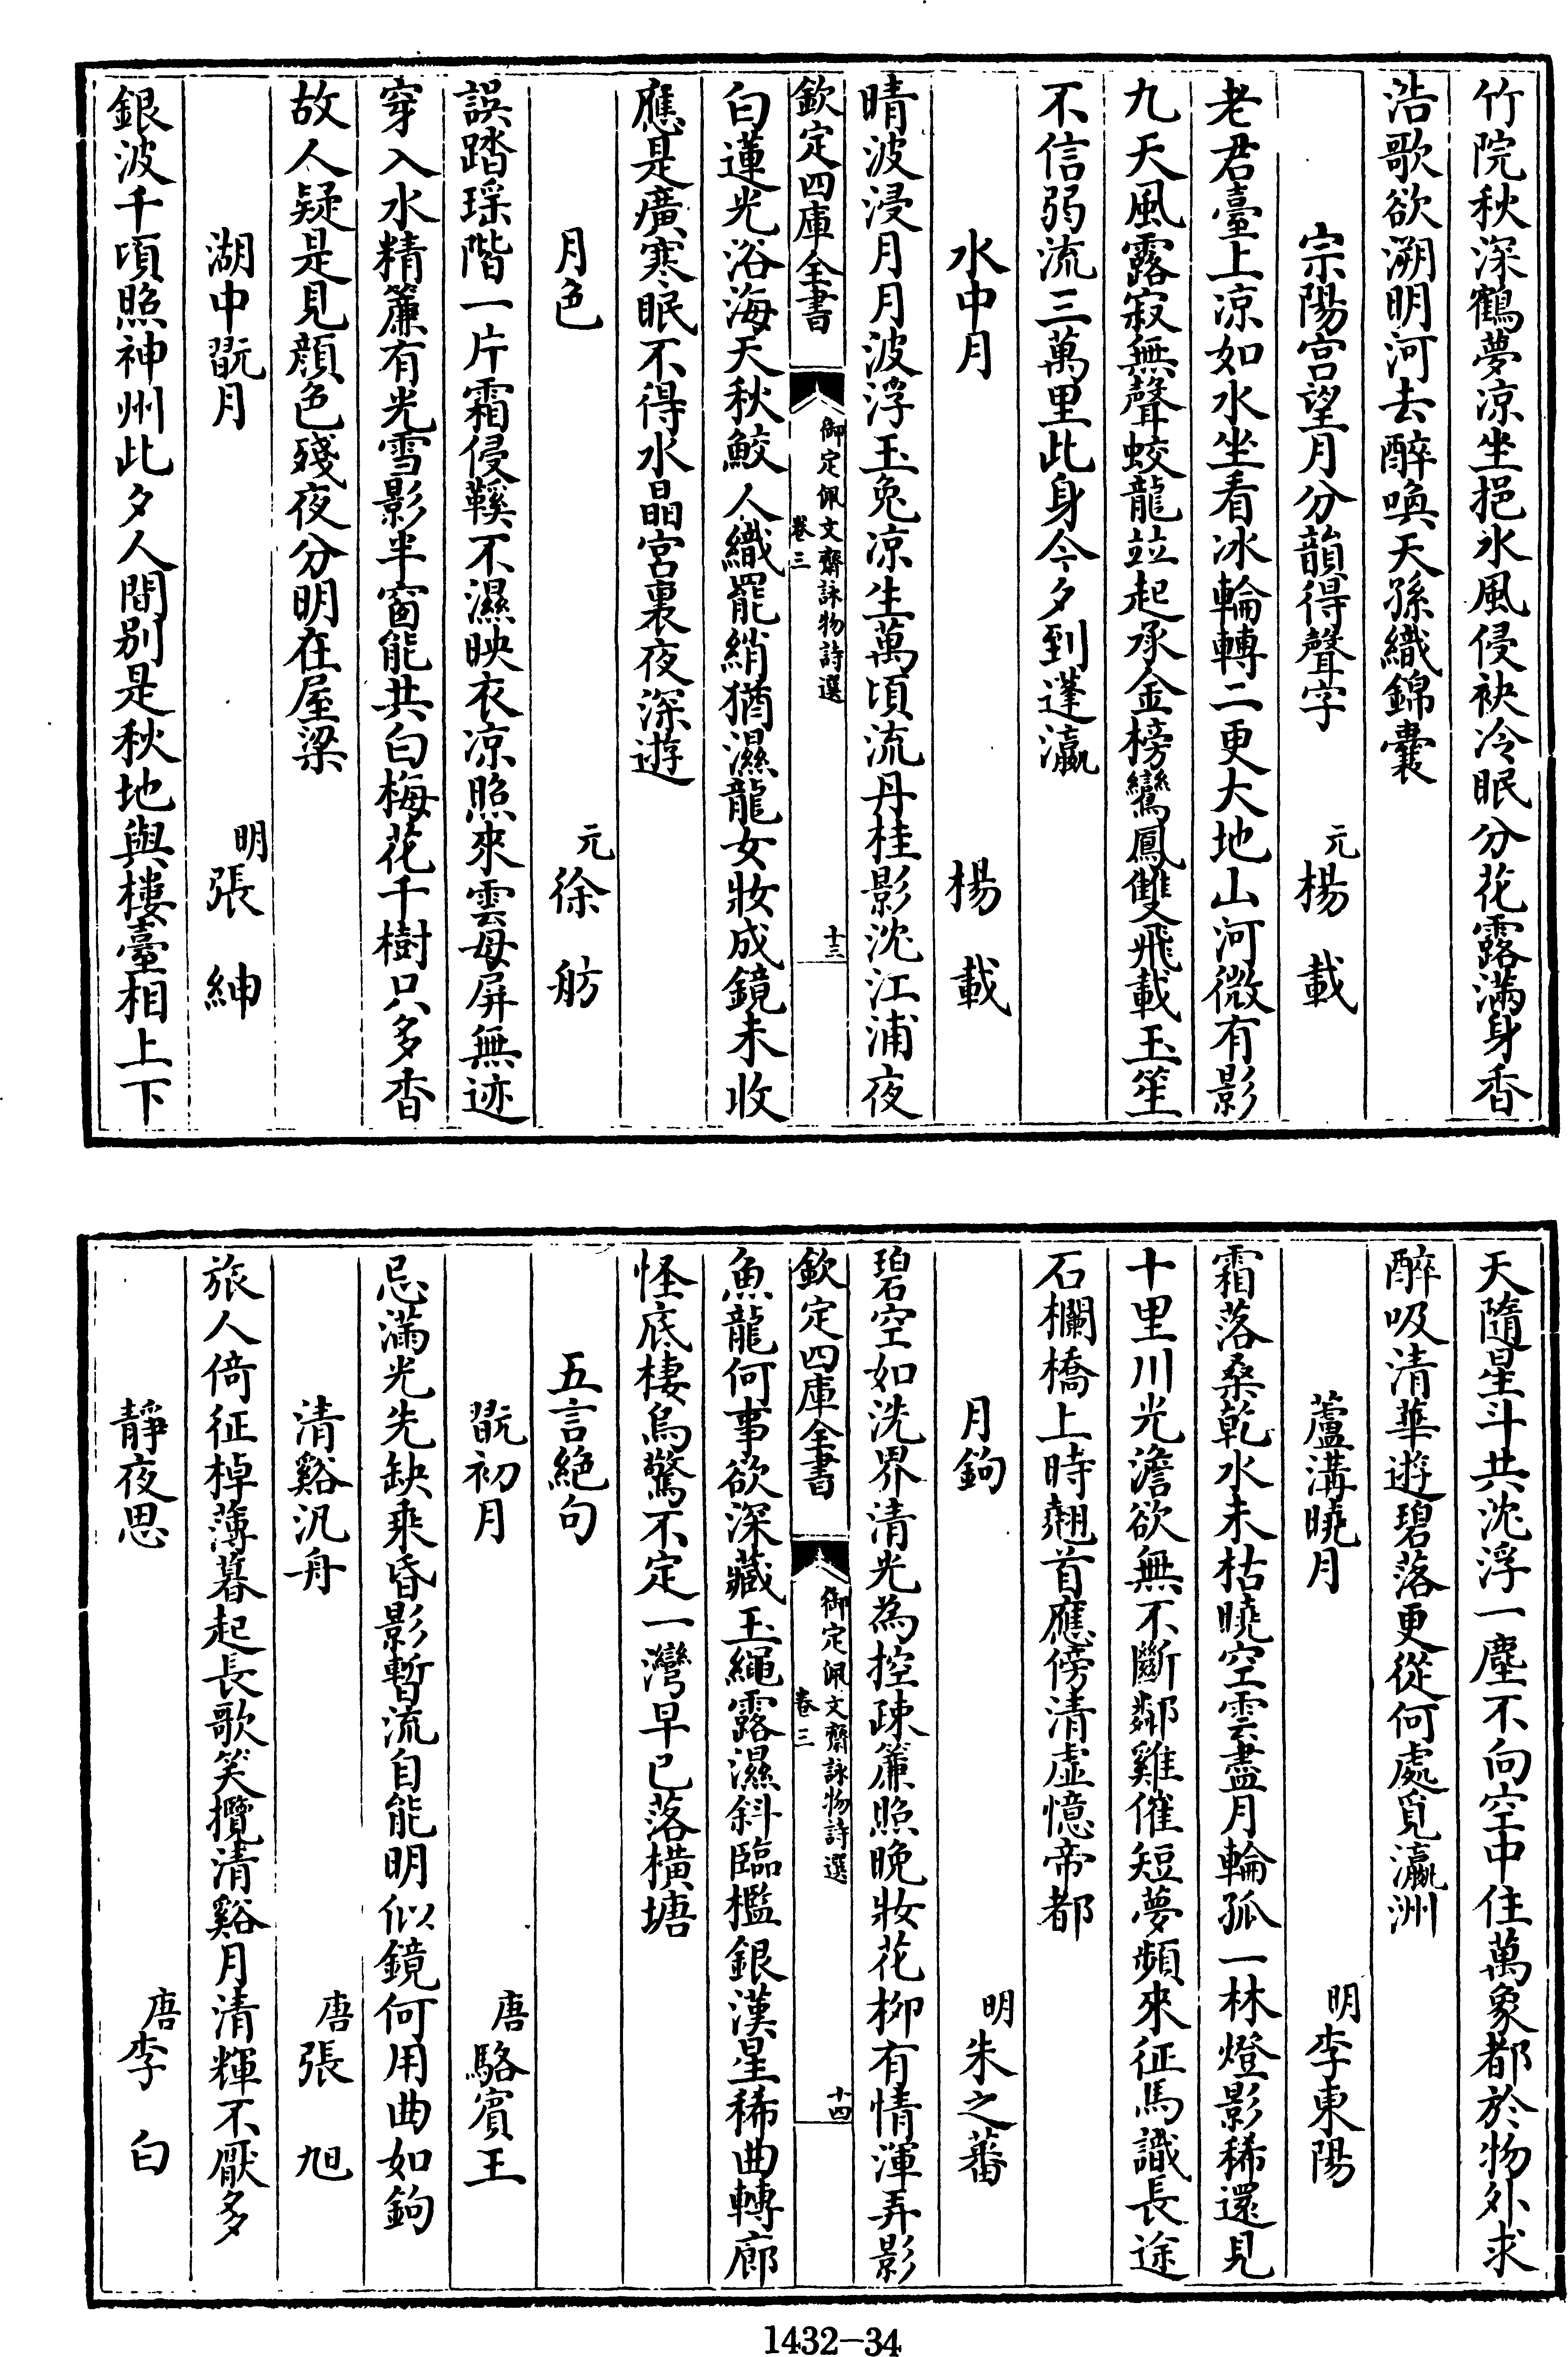 竹院秋深鶴夢凉坐挹氷風侵袂冷眠分花露滿身香
浩歌欲溯明河去醉喚天孫織錦囊
宗陽宫望月分韻得聲字 元楊載
老君臺上凉如水坐看冰輪轉二更大地山河微有影
九天風露寂無聲蛟龍竝起承金榜鸞鳳雙飛載玉笙
不信弱流三萬里此身今夕到蓬瀛
水中月 楊載
晴波浸月月波浮玉兔凉生萬頃流丹桂影沈江浦夜
欽定四庫全書 御定佩文齋詠物詩選 卷三 十三
白蓮光浴海天秋鮫人織罷綃猶濕龍女妝成鏡未收
應是廣寒眠不得水晶宮裏夜深遊
月色 元徐舫
誤踏瑶階一片霜侵鞵不濕映衣凉照來雲母屏無迹
穿入水精簾有光雪影半窗能共白梅花千樹只多香
故人疑是見顔色殘夜分明在屋梁
湖中翫月 明張紳
銀波千頃照神州此夕人間別是秋地與樓臺相上下
天隨星斗共沈浮一塵不向空中住萬象都於物外求
醉吸清華遊碧落更從何處覓瀛洲
蘆溝曉月 明李東陽
霜落桑乾水未枯曉空雲盡月輪孤一林燈影稀還見
十里川光澹欲無不斷鄰雞催短夢頻來征馬識長途
石欄橋上時翹首應傍清虛憶帝都
月鉤 明朱之蕃
碧空如洗界清光為控疎簾照晚妝花柳有情渾弄影
欽定四庫全書 御定佩文齋詠物詩選 卷三 十四
魚龍何事欲深藏玉繩露濕斜臨檻銀漢星稀曲轉廊
怪底棲烏驚不定一灣早已落橫塘
五言絕句
翫初月 唐駱賓王
忌滿光先缺乘昏影暫流自能明似鏡何用曲如鉤
清谿汎舟 唐張旭
旅人倚征棹薄暮起長歌笑攬清谿月清輝不厭多
靜夜思 唐李白
1432-34